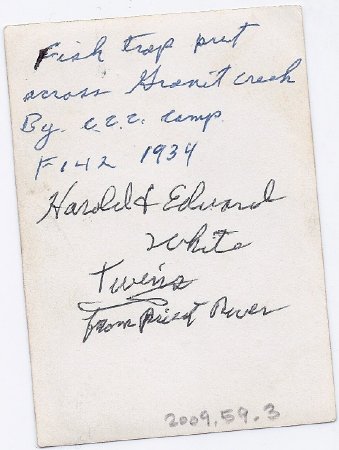 Fish trap put
across Granit creek
By. C.C.C. camp.
F142 1934
Harold & Edward
White
Twins
From Priest River
2009.59.3